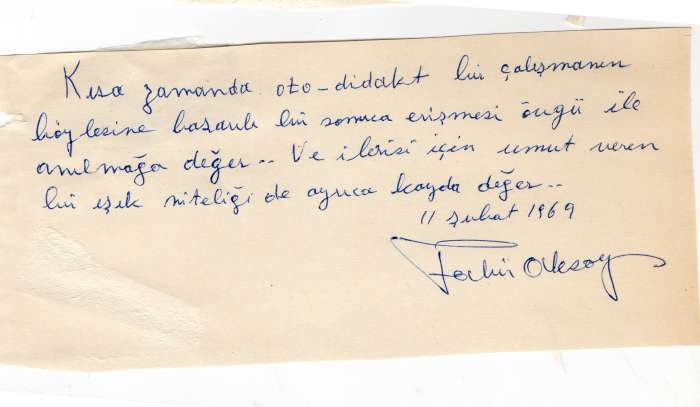 Kısa zamanda oto-didakt bir çalışmanın
böylesine başarılı bir sonuca erişmesi övgü ile
anılmağa değer.. Ve ilerisi için umut veren
bir ışık niteliği de ayrıca kayda değer..
11 Şubat 1969
Fahir Aksoy